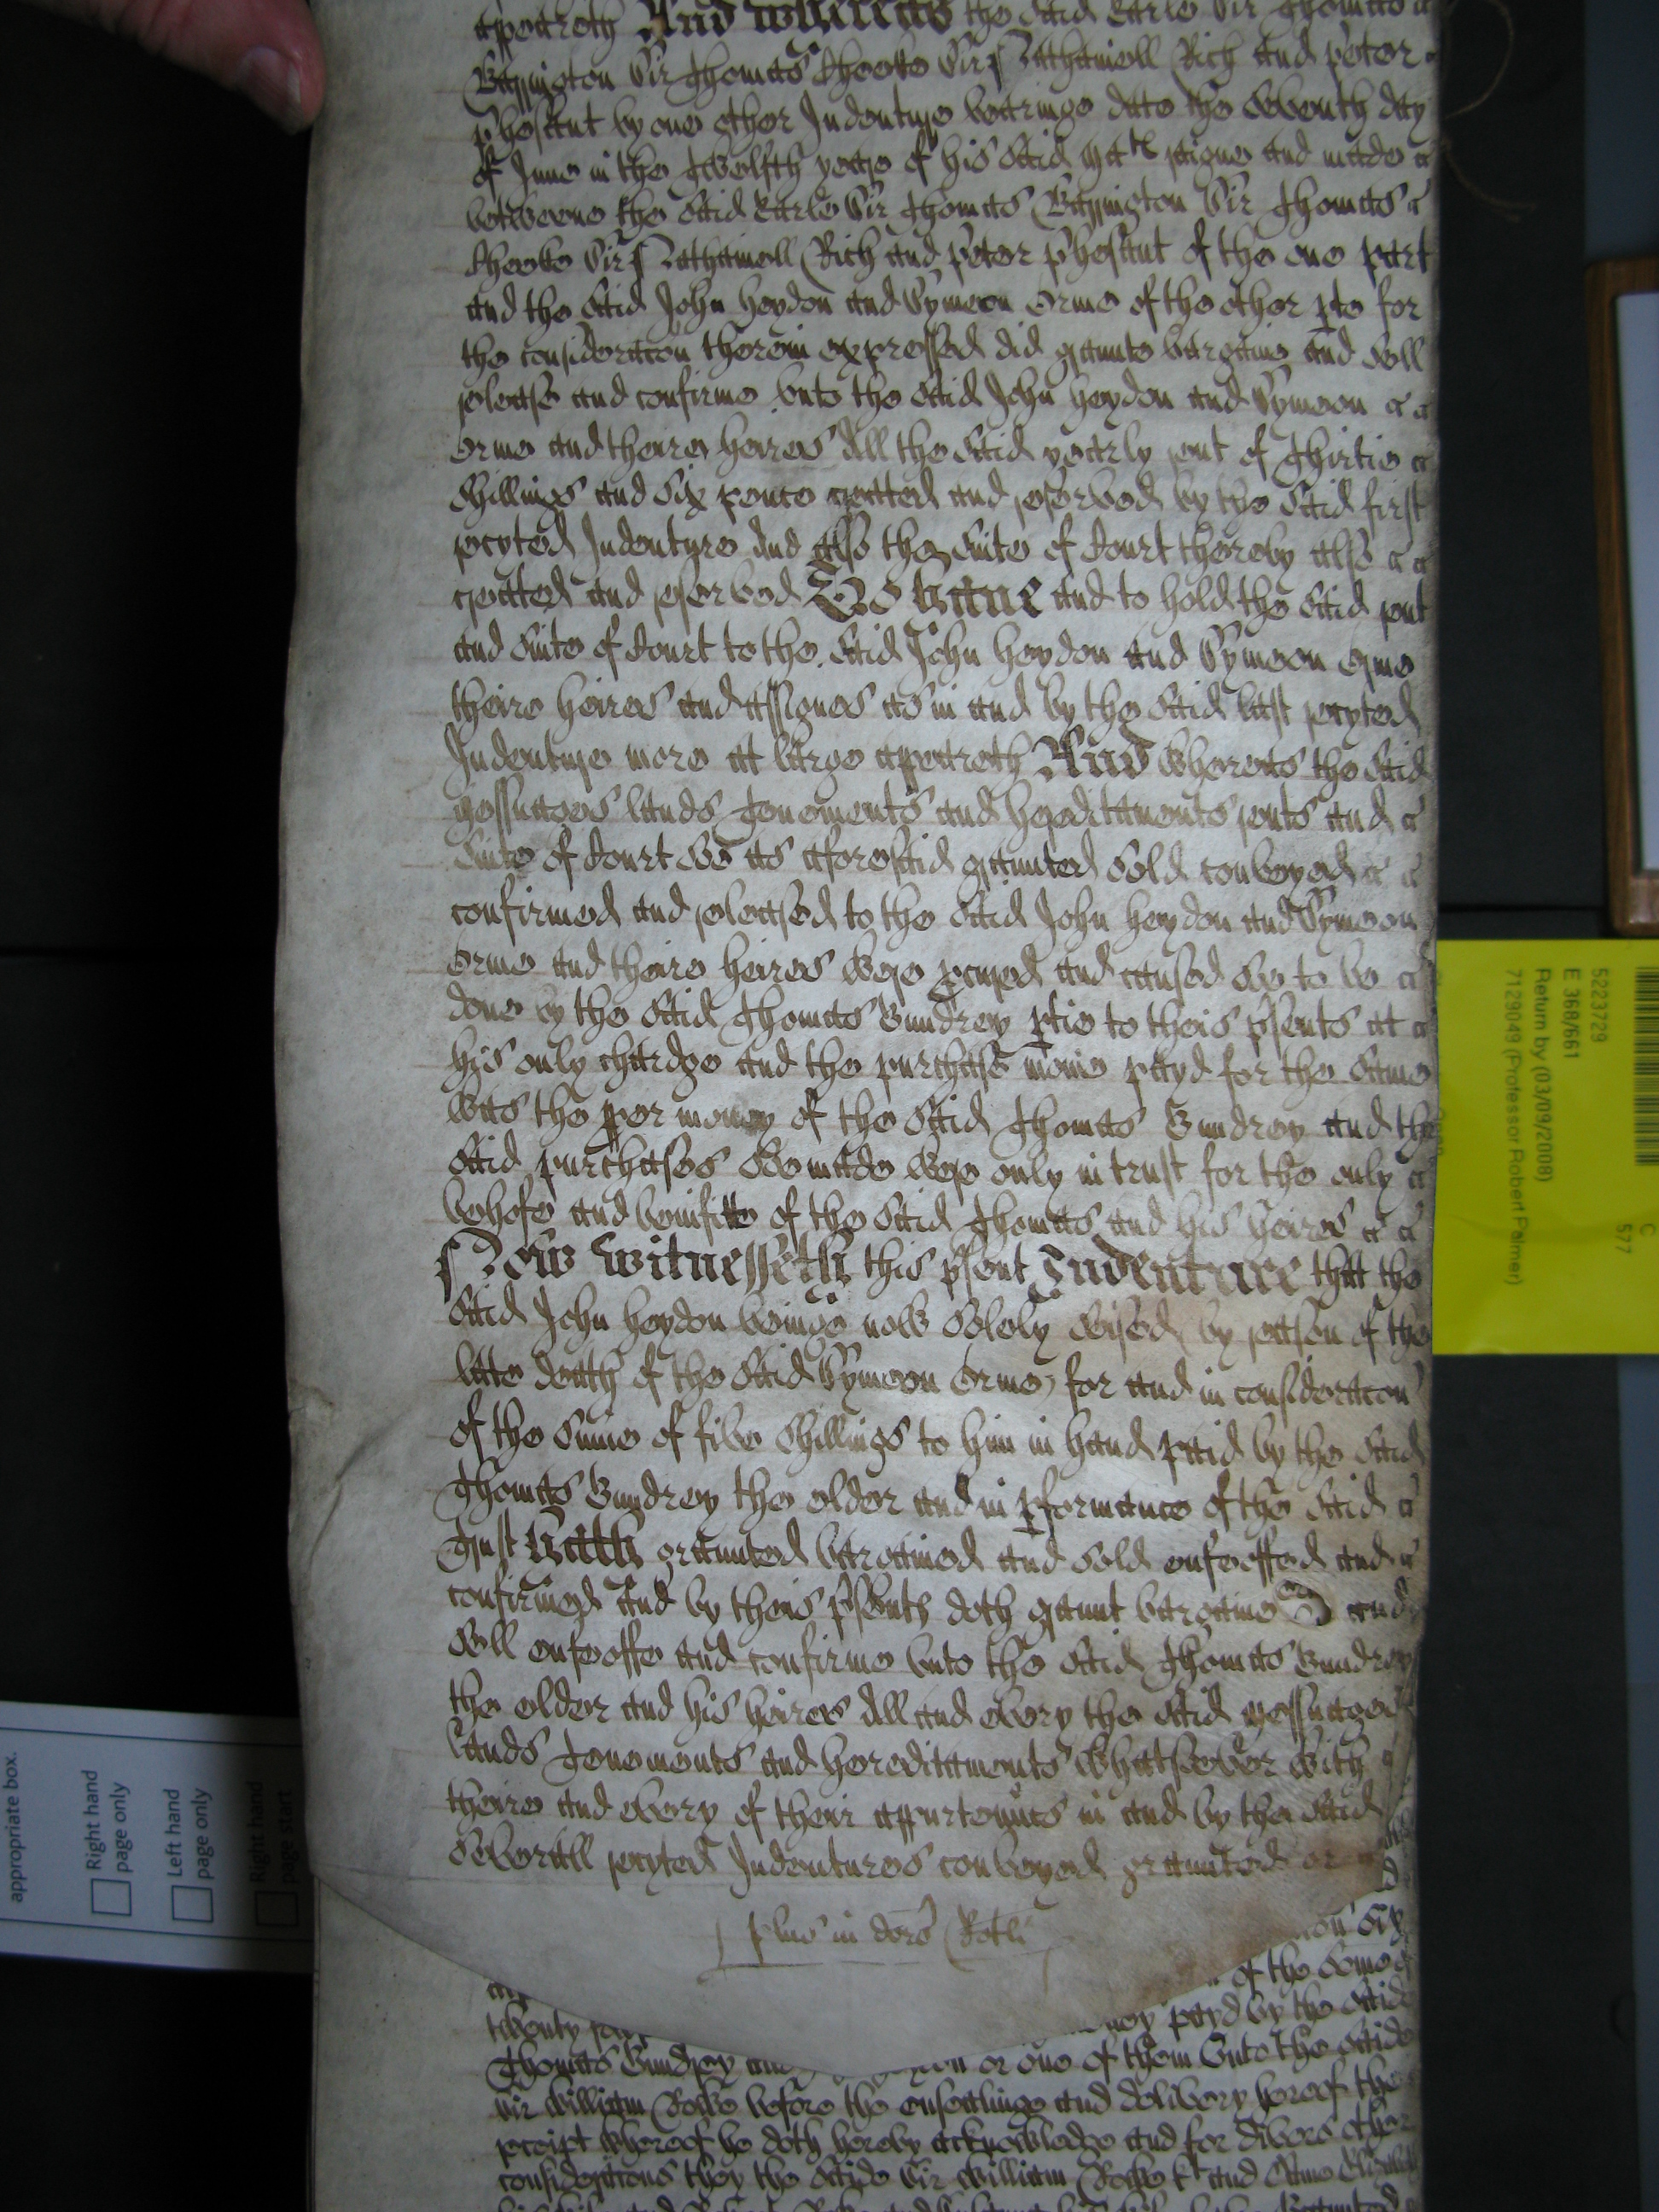 apeareth And whereas the said Earle Sir Thomas
Barrington Sir Thomas Cheeke Sir Nathaniell Rich and Peter
Phesant by one other Indenture bearinge date the seventh day
of June in the twelfth yeare of his said Mats raigne and made
betweene the said Earle Sir Thomas Barrington Sir Thomas
Cheeke Sir Nathaniell Rich and Peter Phesant of the one part
and the said John Heydon and Symeon Orme of the other pte for
the consideracon therein expressed did graunte bargaine and sell
release and confirme unto the said John Heydon and Symeon
Orme and theire heires All the said yearly rent of Thirtie
shillings and six pence created and reserved by the said first
recyted Indenture And also the suite of Court thereby also
created and reserved To have and to hold the said rent
and suite of Court to the said John Heydon and Symeon Orme
theire heires and assignes as in and by the said last recyted
Indenture more at large apeareth And whereas the said
Messuages lands Tenements and hereditaments rents and
suite of Court soe as aforesaid graunted sold conveyed
confirmed and released to the said John Heydon and Symeon
Orme and theire heires were pcured and caused soe to be
done by the said Thomas Gundrey ptie to theis psents at
his only chardge and the purchase monie payd for the same
was the pper money of the said Thomas Gundrey and the
said purchases soe made were only in trust for the only
behofe and benifitte of the said Thomas and his heires
Now witnesseth this psent Indenture that the
said John Heydon beinge now solely seised by reason of the
late death of the said Symeon Orme, for and in consideracon
of the sume of five shillings to him in hand paid by the said
Thomas Gundrey the elder and in pformance of the said
Trust hath graunted bargained and sold enfeoffed and
confirmed and by theis psents doth graunt bargaine and
sell enfeoffe and confirme unto the said Thomas Gundrey
the elder and his heires All and every the said Messuages
lands Tenements and hereditaments whatsoever with
theire and every of their appurtenncs in and by the said
severall recyted Indentures conveyed graunted or
plus in dors Rotli
of the some of
twenty payd by the said
Thomas Gundrey and or one of them unto the said
Sir William Rowe before the ensealinge and delivery hereof the
receipt whereof he doth hereby acknowledge and for divers other
consideracons they the said Sir William Rowe kt and
5223729
E 368/661
Return by (03/09/2008)
7129049 (Professor Robert Palmer)
C
577
appropriate box.
Right hand
page only
Left hand
page only
Right hand
page start